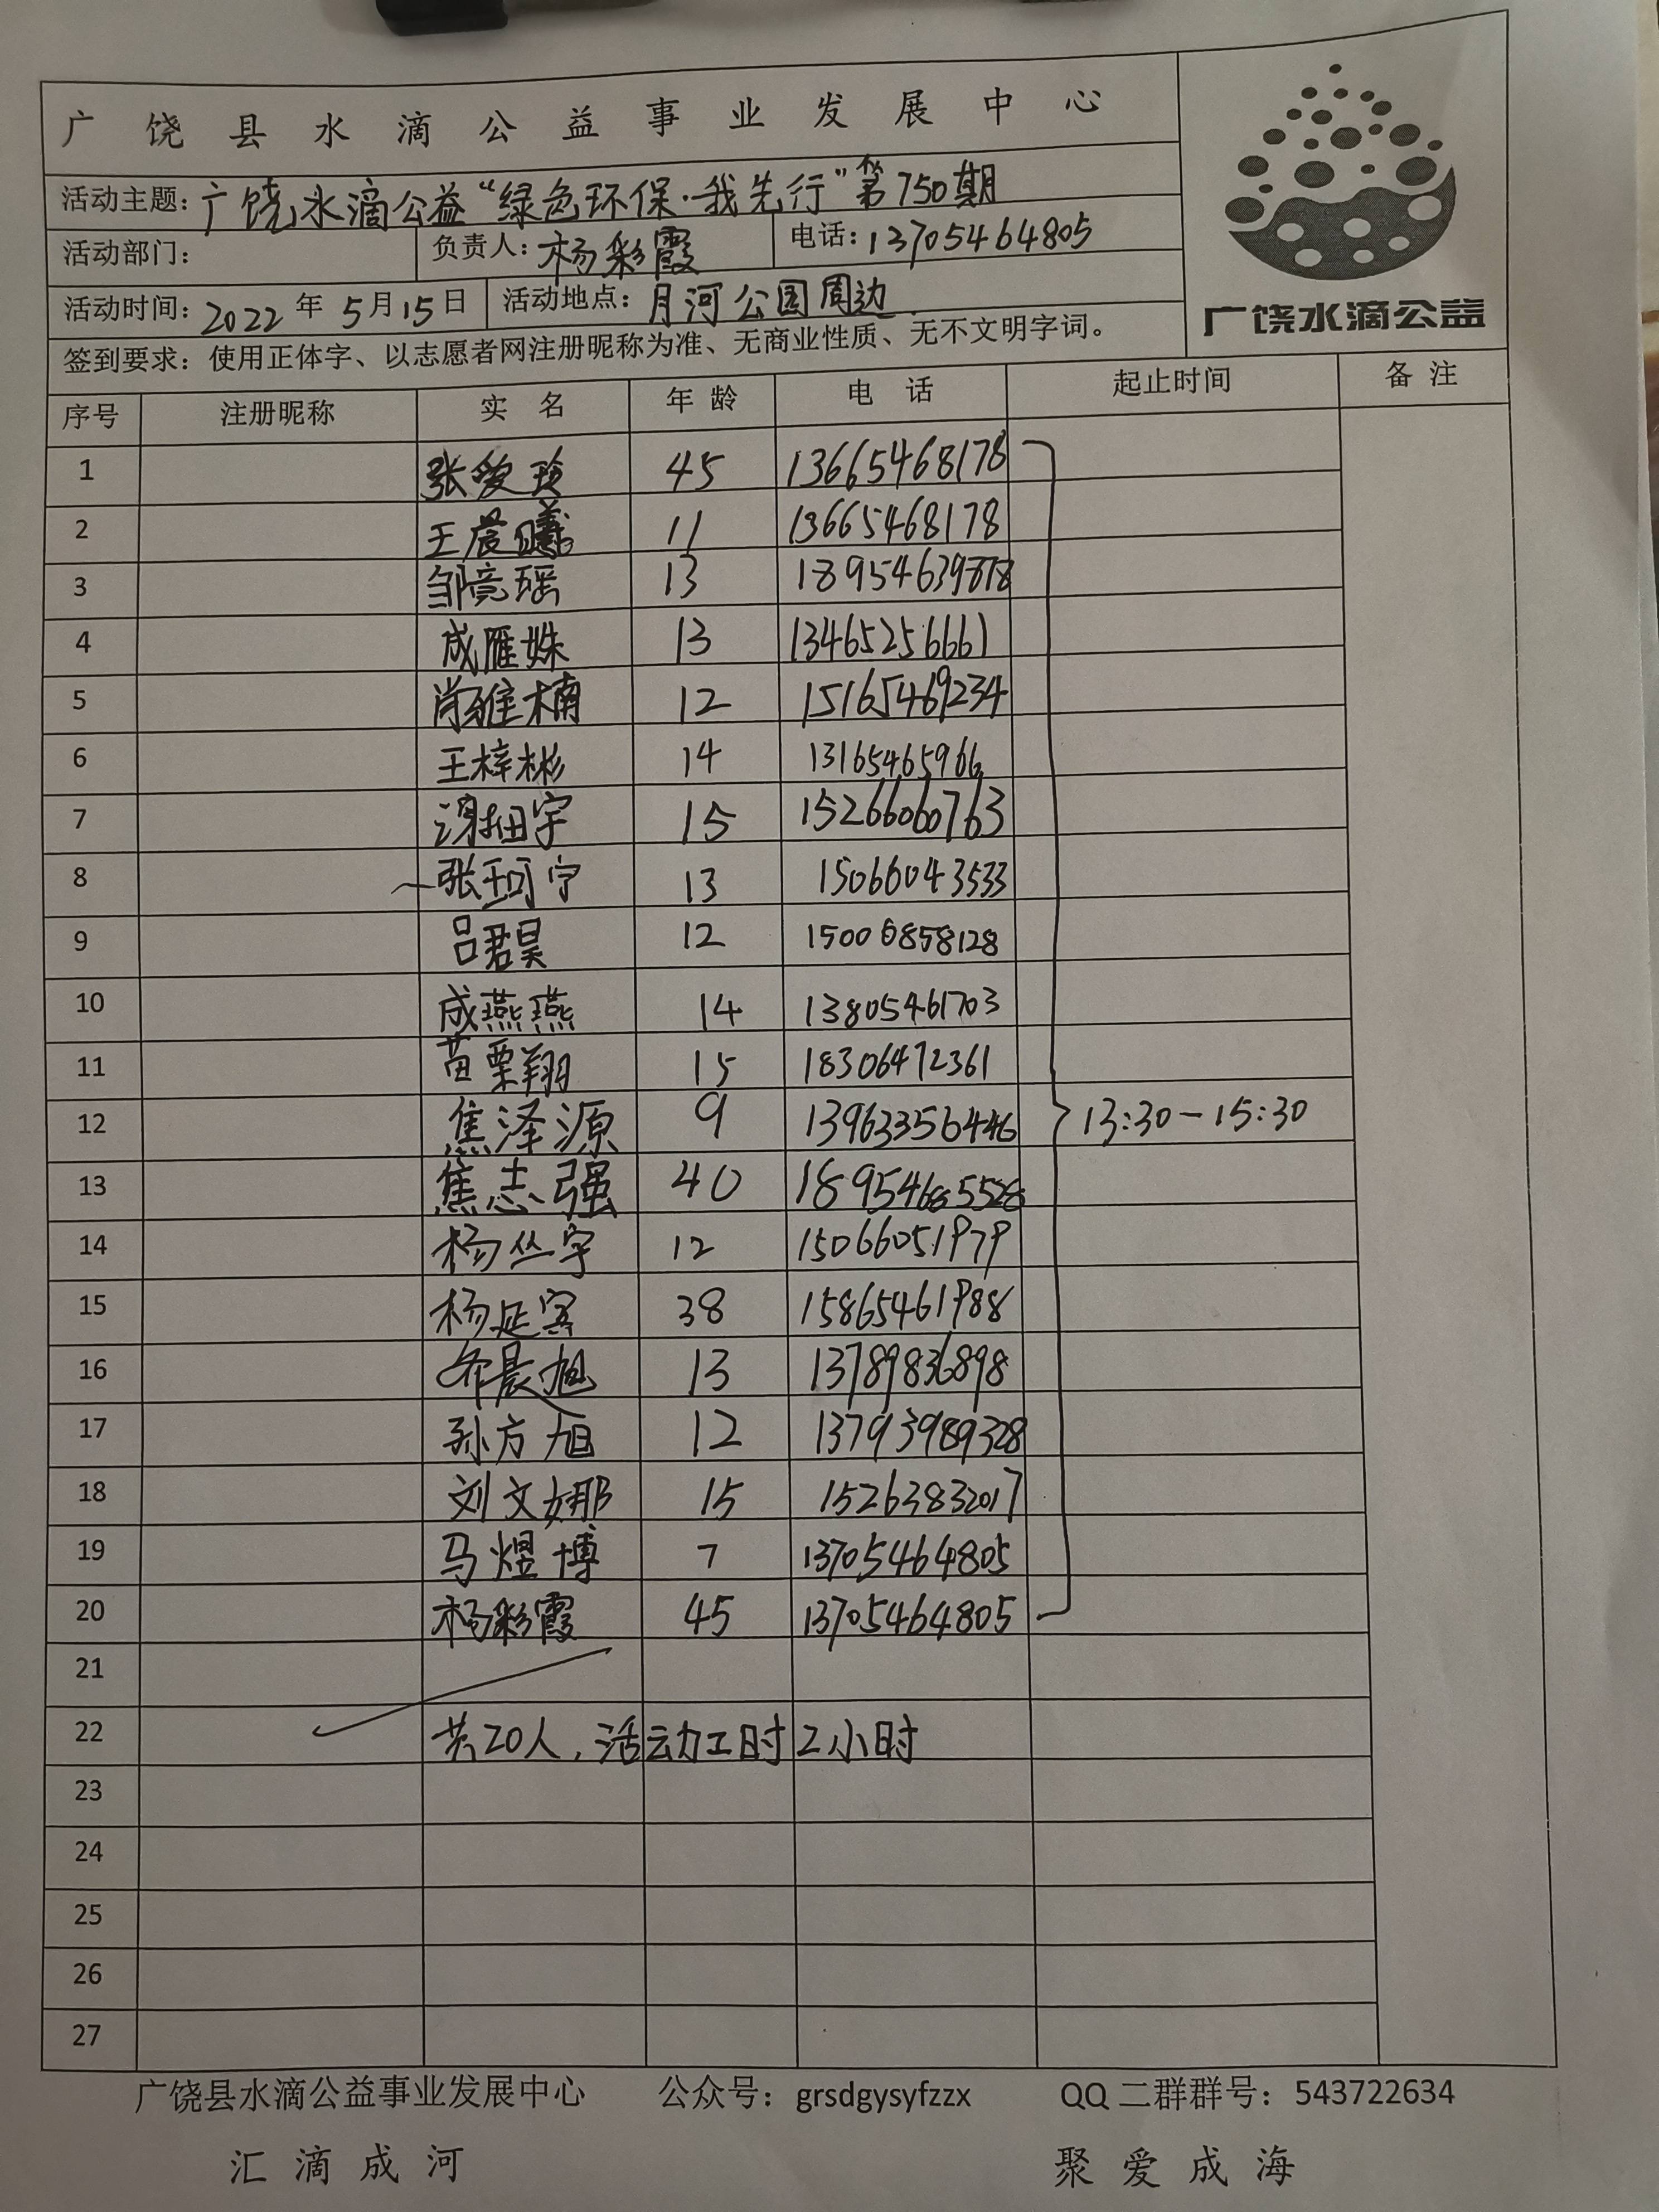 广饶县水滴公益事业发展中心
活动主题：广饶水滴公益“绿色环保·我先行”第750期
活动部门： 负责人：杨彩霞 电话：13705464805
活动时间：2022年5月15日 活动地点：月河公园周边
广饶水滴公益
签到要求：使用正体字、以志愿者网注册昵称为准、无商业性质、无不文明字词。
序号 注册昵称 实名 年龄 电话 起止时间 备注
1 张爱玲 45 13665468178
2 王晨曦 11 13665468178
3 邹竞瑶 13 18954639878
4 成雁姝 13 13465256661
5 肖雅楠 12 15165469234
6 王梓彬 14 13165465966
7 谢 宇 15 15266060763
8 张珂宁 13 15066043533
9 吕君昊 12 15006858128
10 成燕燕 14 13805461703
11 苗栗翔 15 18306472361
12 焦泽源 9 13963356446 13:30-15:30
13 焦志强 40 18954685528
14 杨丛宇 12 15066051979
15 杨延 38 15865461988
16 晨旭 13 13789836898
17 孙方旭 12 13793989328
18 刘文娜 15 15263832017
19 马煜博 7 13705464805
20 杨彩霞 45 13705464805
21
22 共20人，活动工时2小时
23
24
25
26
27
广饶县水滴公益事业发展中心 公众号：grsdgysyfzzx QQ二群群号：543722634
汇滴成河 聚爱成海